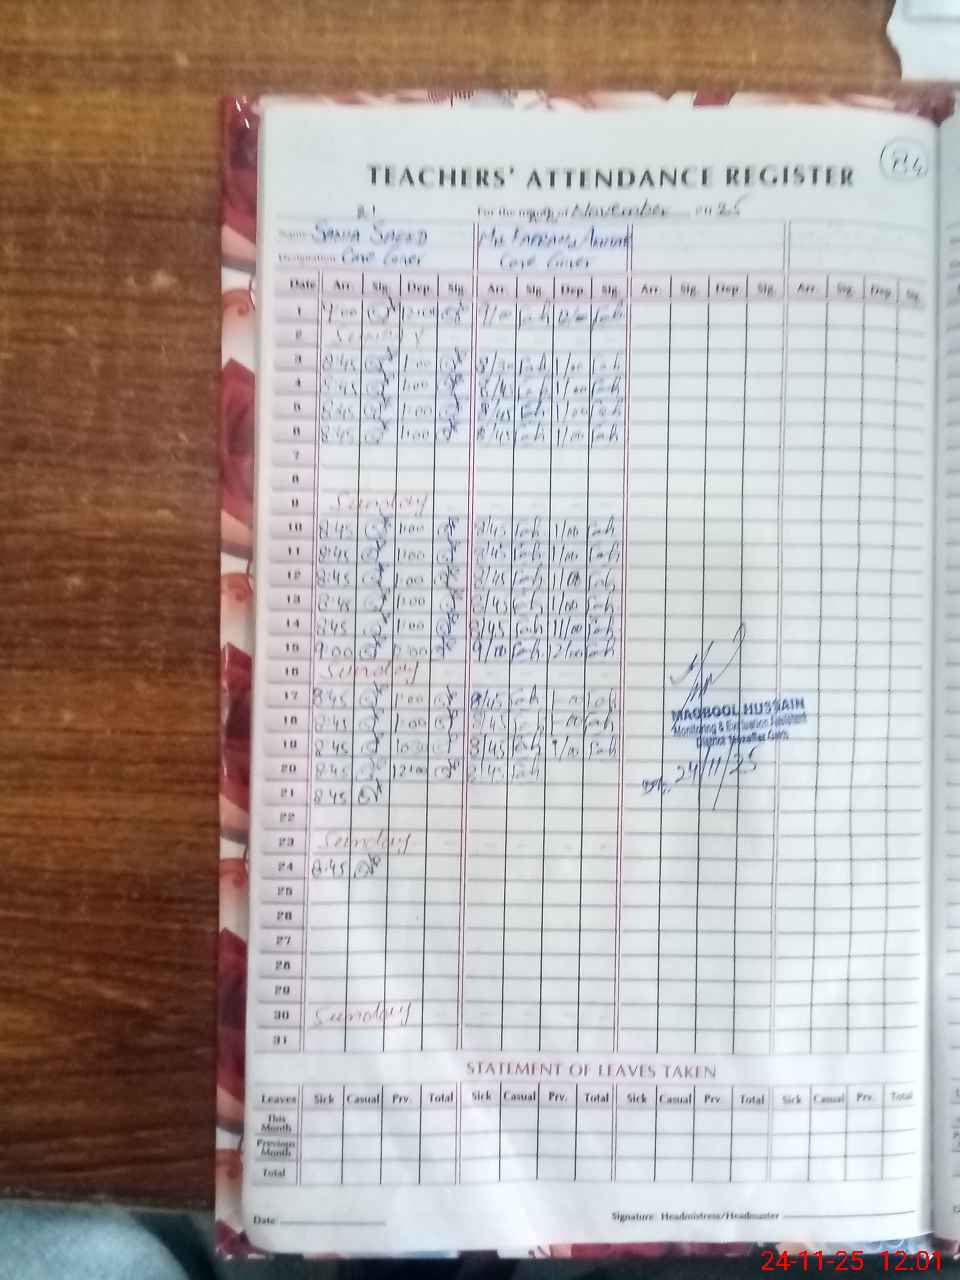 84
TEACHERS' ATTENDANCE REGISTER
21
For the month of November 2025
Name SANIA SAEED
Designation Care Giver Care Giver
Date Arr. Sig. Dep. Sig. Arr. Sig. Dep. Sig. Arr. Sig. Dep. Sig. Arr. Sig. Dep. Sig.
1 9:00 12:00 9/00 12/00
2 Sunday
3 8:45 1:00 8/30 1/00
4 8:45 1:00 8/45 1/00
5 8:45 1:00 8/45 1/00
6 8:45 1:00 8/45 1/00
7
8
9 Sunday
10 8:45 1:00 8/45 1/00
11 8:45 1:00 8/45 1/00
12 8:45 1:00 8/45 1/00
13 8:45 1:00 8/45 1/00
14 8:45 1:00 8/45 11/00
15 9:00 9/00 12/00
16 Sunday
17 8:45 1:00 8/45
18 8:45 1:00 8/45
19 8:45 10:30 8/45 9/00
20 8:45 12:00 8/45
21 8:45
22
23 Sunday
24 8:45
25
26
27
28
29
30 Sunday
31
MAQBOOL HUSSAIN
Monitoring & Evaluation Assistant
District Muzaffar Garh
24/11/25
STATEMENT OF LEAVES TAKEN
Leaves Sick Casual Prv. Total Sick Casual Prv. Total Sick Casual Prv. Total Sick Casual Prv. Total
This Month
Previous Month
Total
Date: Signature: Headmistress/Headmaster
24-11-25 12:01